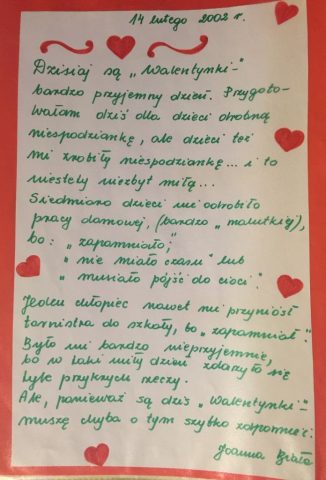 14 lutego 2002 r.
Dzisiaj są „Walentynki” –
bardzo przyjemny dzień. Przygoto-
wałam dziś dla dzieci drobną
niespodziankę, ale dzieci też
mi zrobiły niespodziankę... i to
niestety niezbyt miłą...
Siedmioro dzieci nie odrobiło
pracy domowej, (bardzo „malutkiej”),
bo: „zapomniało”,
„nie miało czasu” lub
„musiało pójść do cioci”.
Jeden chłopiec nawet nie przyniósł
tornistra do szkoły, bo „zapomniał”.
Było mi bardzo nieprzyjemnie,
bo w taki miły dzień zdarzyło się
tyle przykrych rzeczy.
Ale, ponieważ są dziś „Walentynki” –
muszę chyba o tym szybko zapomnieć.
Joanna